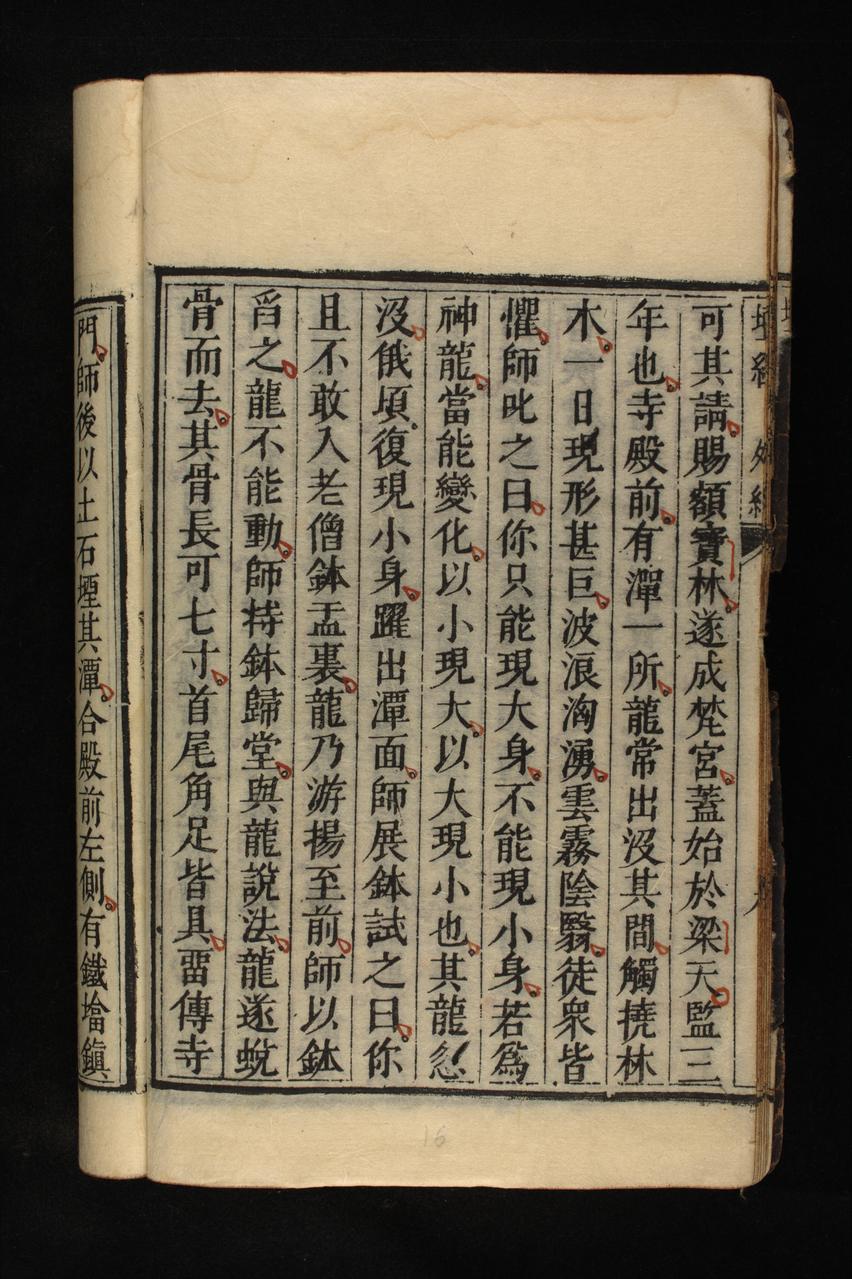 壇經 外紀
可其請賜額寶林遂成梵宮蓋始於梁天監三
年也寺殿前有潭一所龍常出没其間觸撓林
木一日現形甚巨波浪洶湧雲霧陰翳徒衆皆
懼師叱之曰你只能現大身不能現小身若為
神龍當能變化以小現大以大現小也其龍忽
没俄頃復現小身躍出潭面師展鉢試之曰你
且不敢入老僧鉢盂裏龍乃游揚至前師以鉢
舀之龍不能動師持鉢歸堂與龍說法龍遂蛻
骨而去其骨長可七寸首尾角足皆具留傳寺
門師後以土石堙其潭今殿前左側有鐵塔鎮
16